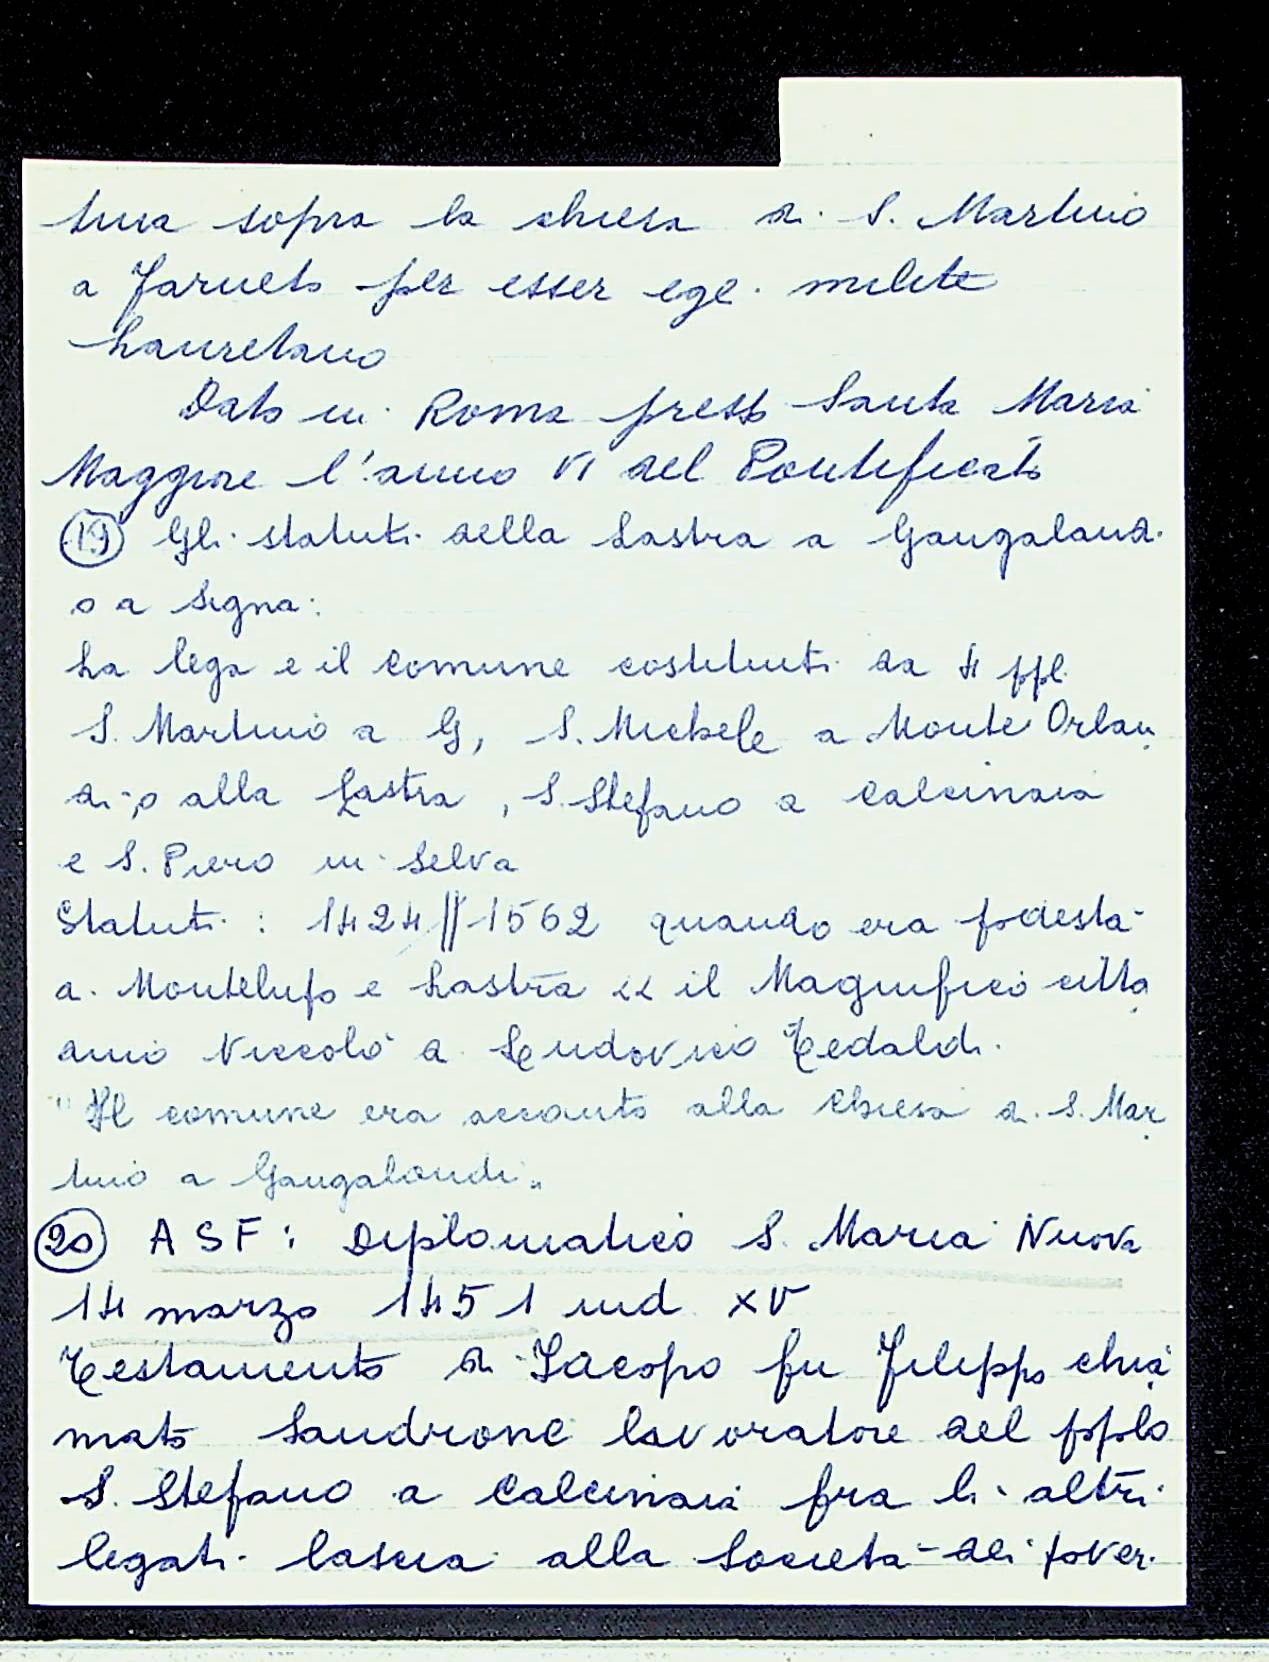 tura sopra la chiesa di S. Martino
a Farneto per esser ege. milite
Lauretano
Dato in Roma presso Santa Maria
Maggiore l'anno VI del Pontificato
(19) Gli statuti della Lastra a Gangaland.
o a Signa:
La lega e il comune costituiti da 4 ppl.
S. Martino a G, S. Michele a Monte Orlan
di, o alla Lastra, S. Stefano a Calcinaia
e S. Piero in Selva
Statuti: 1424 || 1562 quando era podestà
a. Montelupo e Lastra << il Magnifico citta
dino Niccolò di Lodovico Tedaldi.
"Il comune era accanto alla Chiesa di S. Mar
tino a Gangalandi"
(20) ASF: Diplomatico S. Maria Nuova
14 marzo 1451 ind XV
Testamento di Iacopo fu Filippo chia
mato Sandrone lavoratore del popolo
S. Stefano a Calcinaia fra li altri
legati lascia alla Società dei pover.